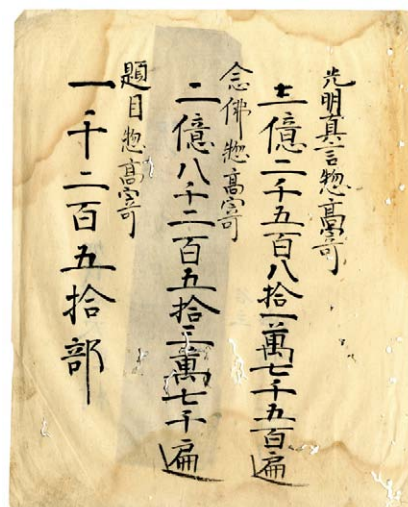 光明真言惣高寄
十一億二千五百八拾一萬七千五百遍
念佛惣高寄
二億八千二百五拾三萬七千遍
題目惣高寄
一千二百五拾部